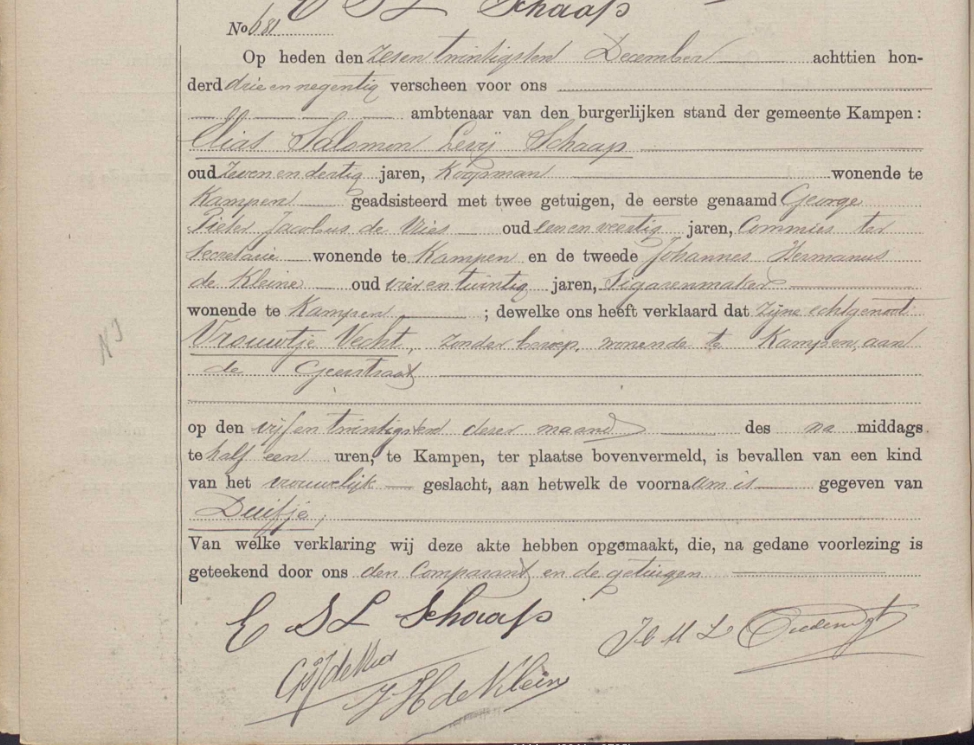 E S L Schaap
No 681
Op heden den zesen twintigsten December achttien hon-
derd drie en negentig verscheen voor ons
ambtenaar van den burgerlijken stand der gemeente Kampen:
Elias Salomon Levij Schaap
oud zeven en dertig jaren, Koopman wonende te
Kampen geadsisteerd met twee getuigen, de eerste genaamd George
Pieter Jacobus de Vries oud een en veertig jaren, Commies ter
Secretarie wonende te Kampen en de tweede Johannes Hermanus
de Kleine oud vier en twintig jaren, Sigarenmaker
wonende te Kampen; dewelke ons heeft verklaard dat zijne echtgenoot
Vrouwtje Vecht, zonder beroep, wonende te Kampen, aan
de Geerstraat
op den vijf en twintigsten dezer maand des na middags
te half een uren, te Kampen, ter plaatse bovenvermeld, is bevallen van een kind
van het vrouwelijk geslacht, aan hetwelk de voornaam is gegeven van
Duifje,
Van welke verklaring wij deze akte hebben opgemaakt, die, na gedane voorlezing is
geteekend door ons den Comparant en de getuigen
E S L Schaap
GPJ de Vries
J H de Kleine